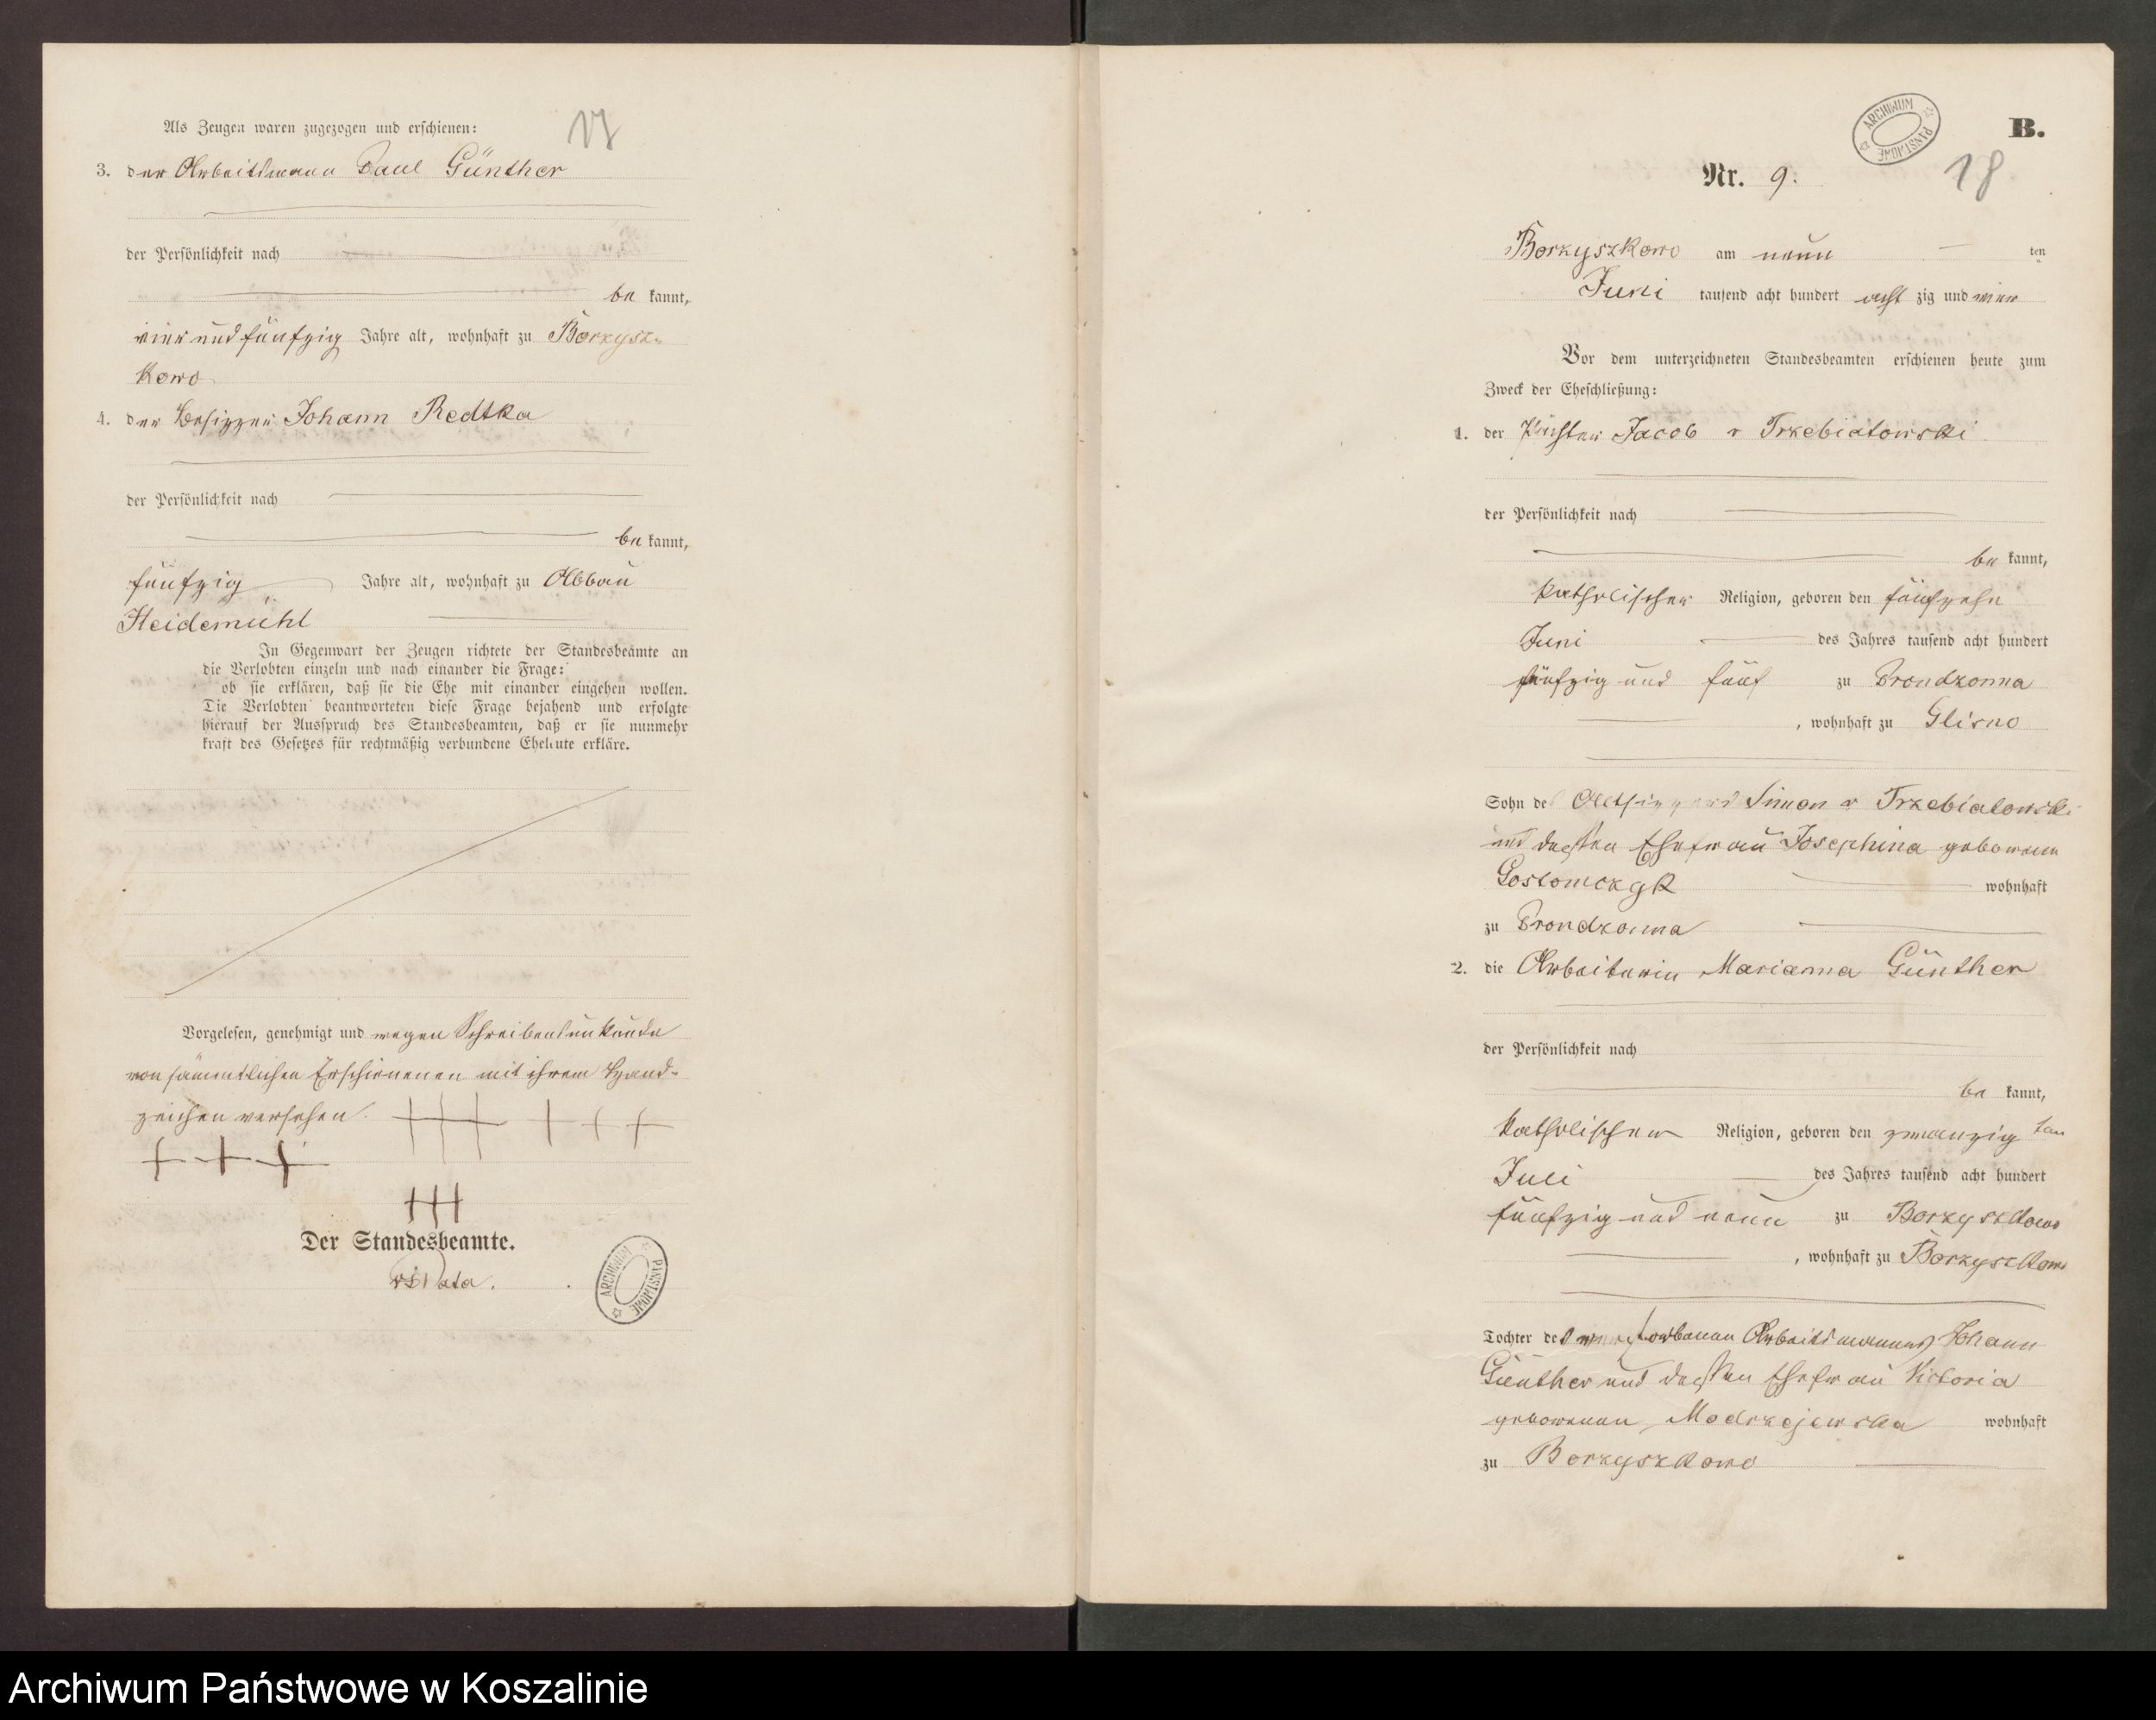 17
Als Zeugen waren zugezogen und erschienen:
3. der Arbeitsmann Paul Günther
der Persönlichkeit nach
be kannt,
vier und fünfzig Jahre alt, wohnhaft zu Borzysz-
kowo
4. der Besitzer Johann Redtka
der Persönlichkeit nach
be kannt,
fünfzig Jahre alt, wohnhaft zu Abbau
Heidemühl
In Gegenwart der Zeugen richtete der Standesbeamte an
die Verlobten einzeln und nach einander die Frage:
ob sie erklären, daß sie die Ehe mit einander eingehen wollen.
Die Verlobten beantworteten diese Frage bejahend und erfolgte
hierauf der Ausspruch des Standesbeamten, daß er sie nunmehr
kraft des Gesetzes für rechtmäßig verbundene Eheleute erkläre.
Vorgelesen, genehmigt und wegen Schreibensunkunde
von sämmtlichen Erschienenen mit ihrem Hand-
zeichen versehen.
+++ +++
+++
+++
Der Standesbeamte.
ARCHIWUM PAŃSTWOWE
ARCHIWUM PAŃSTWOWE
B.
18
Nr. 9.
Borzyszkowo am neun ten
Juni tausend acht hundert acht zig und vier
Vor dem unterzeichneten Standesbeamten erschienen heute zum
Zweck der Eheschließung:
1. der Jacob v Trzebiatowski
der Persönlichkeit nach
be kannt,
katholischer Religion, geboren den fünfzehn
Juni des Jahres tausend acht hundert
fünfzig und fünf zu Prondzonna
, wohnhaft zu Glisno
Sohn des Altsitzers Simon v Trzebiatowski
und dessen Ehefrau Josephina geborenen
Gostomczyk wohnhaft
zu Prondzonna
2. die Arbeiterin Marianna Günther
der Persönlichkeit nach
be kannt,
katholischer Religion, geboren den zwanzig ten
Juli des Jahres tausend acht hundert
fünfzig und neun zu Borzyszkowo
, wohnhaft zu Borzyszkowo
Tochter des verstorbenen Arbeitsmannes Johann
Günther und dessen Ehefrau Victoria
geborenen Modrzejewska wohnhaft
zu Borzyszkowo
Archiwum Państwowe w Koszalinie